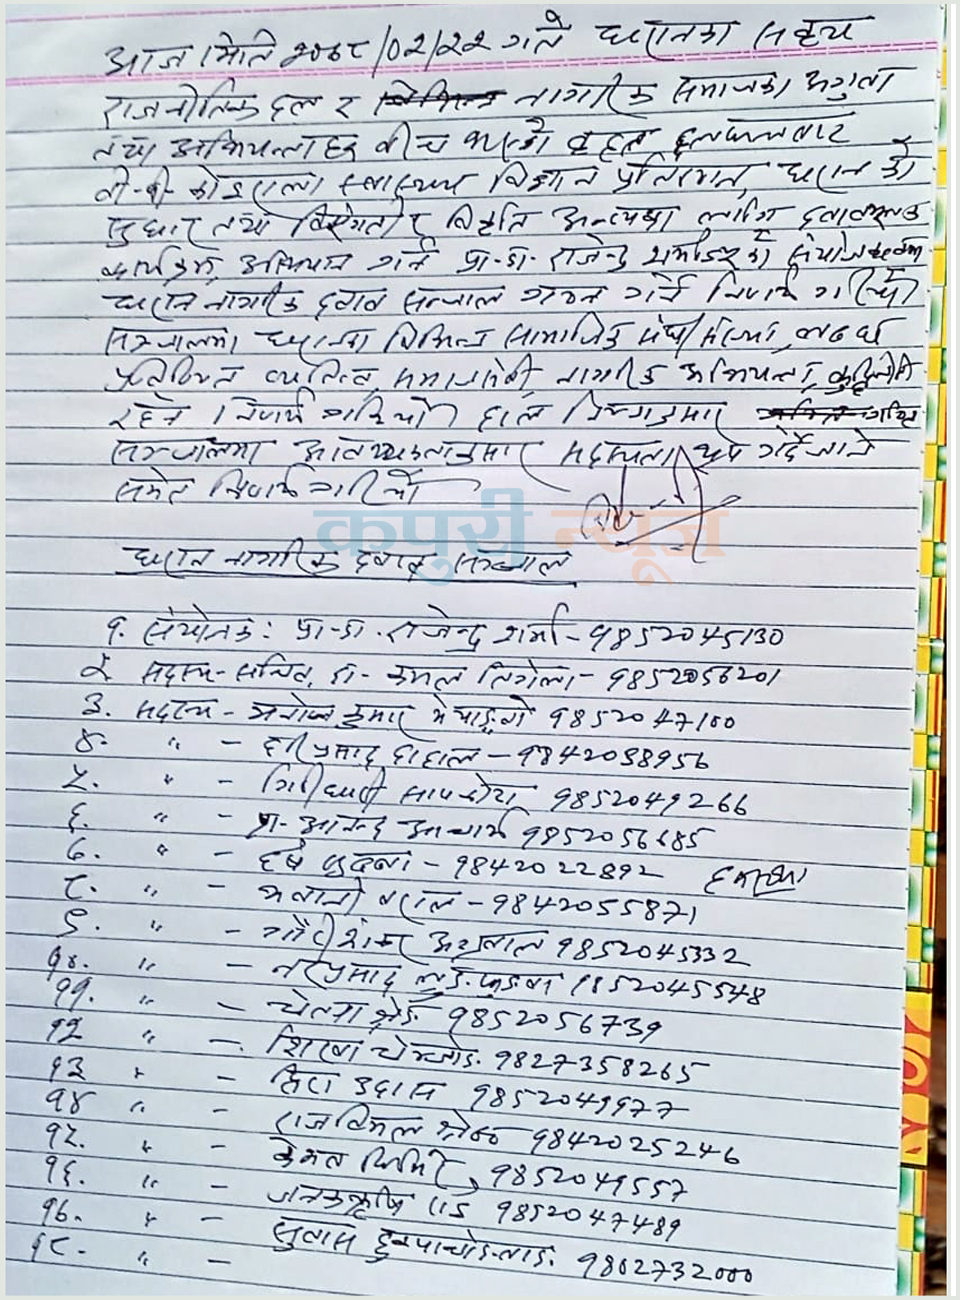 आज मिति २०७८/02/22 गते धरानका सबै
राजनीतिक दल र नागरिक समाजका अगुवा
तथा अभियन्ताहरु बीच भएको बृहत छलफलबाट
वी.पी. कोइराला स्वास्थ्य विज्ञान प्रतिष्ठान, धरान को
सुधार तथा विसंगती र विकृति अन्त्यका लागि दवावमूलक
कार्यक्रम, अभियान गर्न प्रा.डा. राजेन्द्र शर्मा को संयोजकत्वमा
धरान नागरिक दवाव सन्जाल गठन गर्ने निर्णय गरियो
सन्जालमा धरानका विभिन्न सामाजिक संघ/संस्था,
प्रतिष्ठित व्यक्तित्व, समाजसेवी, नागरिक अभियन्ता, बुद्धिजीवि
रहने निर्णय गरियो। हाल निम्नानुसार
सन्जालमा आवश्यकतानुसार सदस्यता थप गर्दै जाने
समेत निर्णय गरियो।
कपुरी न्यूज
धरान नागरिक दवाव सन्जाल
१. संयोजक: प्रा.डा. राजेन्द्र शर्मा - 9852045130
२. सदस्य-सचिव, डा. कमल - 9852056201
३. सदस्य - मनोज कुमार मेयाङ्बो 9852047100
४. " - हरि प्रसाद दाहाल - 9842038956
५. " - गिरीधारी सापकोटा 9852049266
६. " - प्रा. आनन्द आचार्य 9852056685
७. " - हर्ष सुब्बा - 9842022892
८. " - भवानी बराल - 9842055871
९. " - गौरी शंकर अग्रवाल 9852045332
१०. " - नरप्रसाद 9852045548
११. " - 9852056739
१२ " - 9827358265
१३ " - हिरा उदास 9852049977
१४ " - राजविमल श्रेष्ठ 9842025246
१५. " - केमल घिमिरे, 9852049557
१६. " - जनकऋषि राई 9852047489
१७. " - सुवास 9802732000
१८. " -